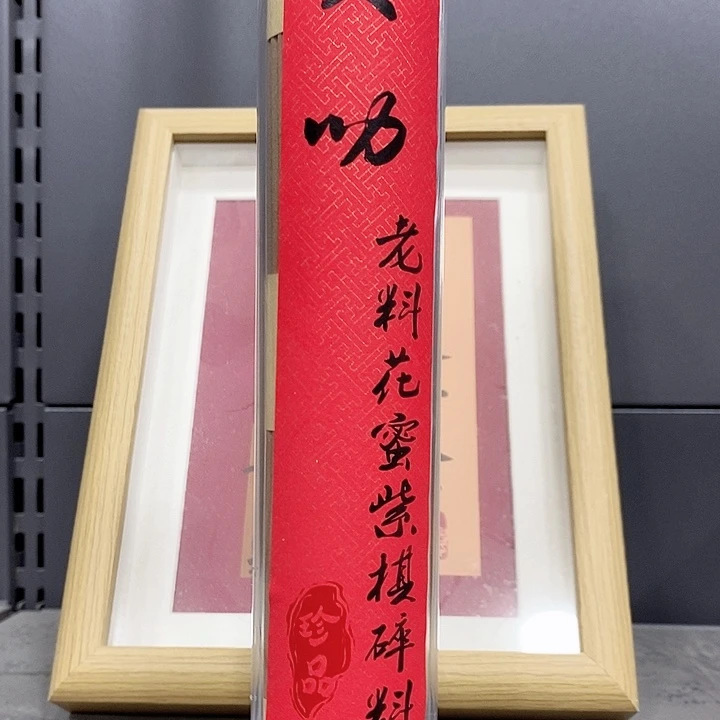 叻
老料花蜜紫棋碎料
珍品